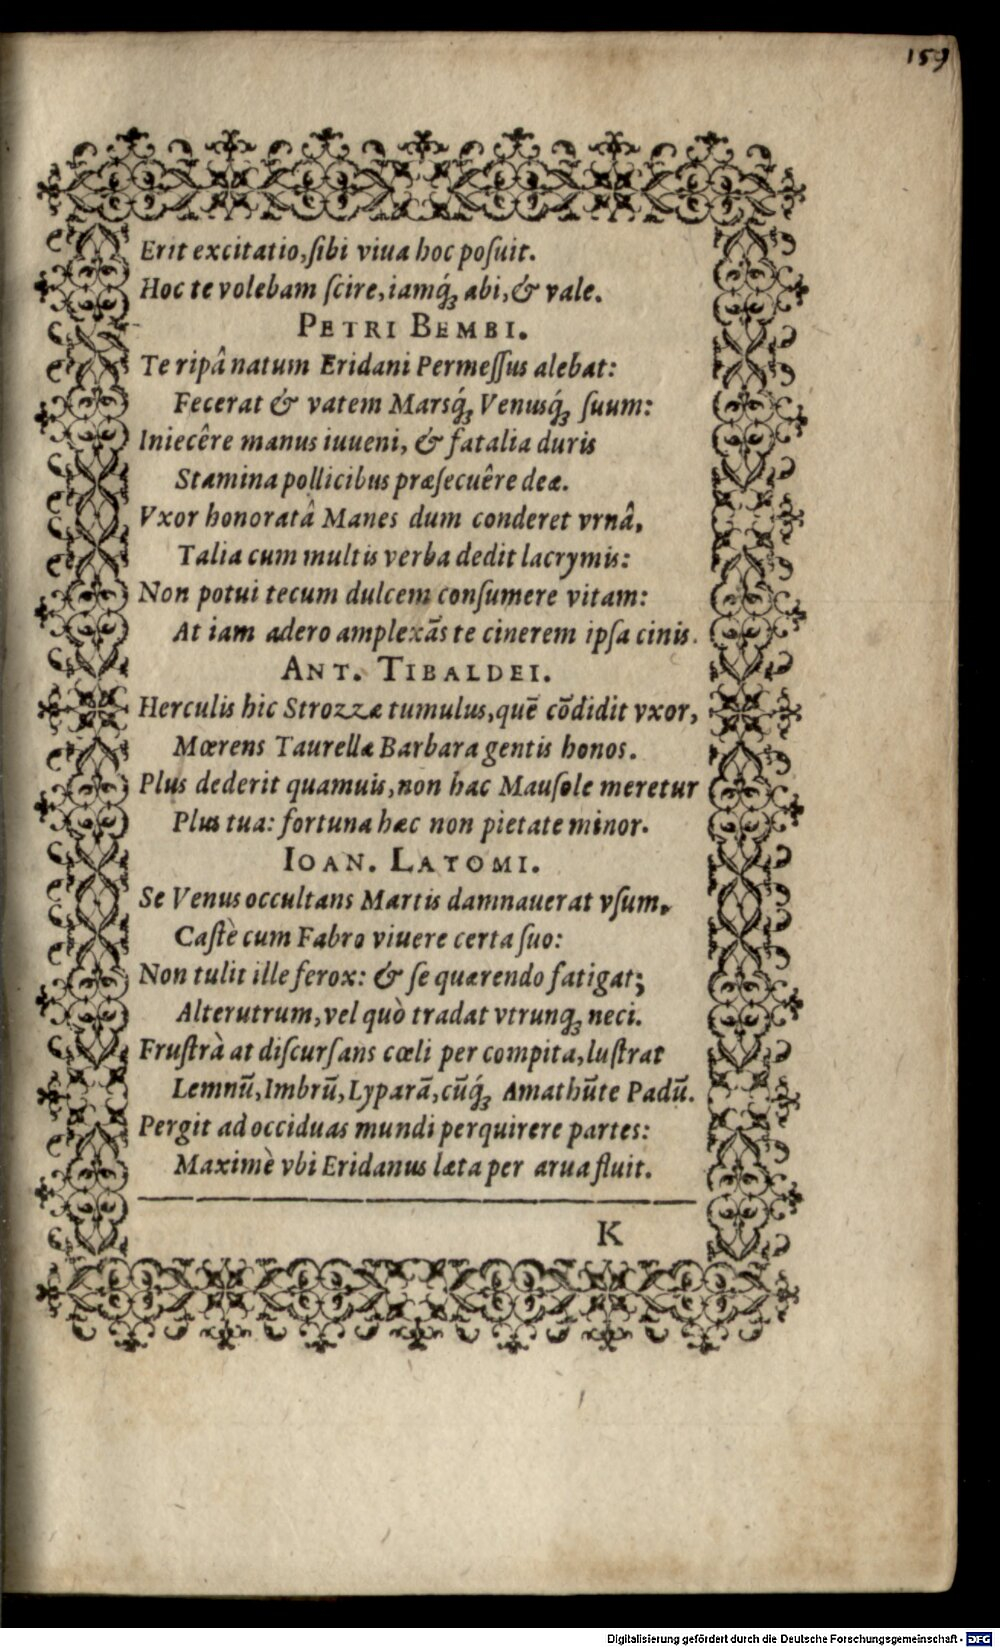 159
Erit excitatio, ſibi viua hoc poſuit.
Hoc te volebam ſcire, iamq́; abi, & vale.
PETRI BEMBI.
Te ripâ natum Eridani Permeſſus alebat:
Fecerat & vatem Marsq́; Venusq́; ſuum:
Iniecêre manus iuueni, & fatalia duris
Stamina pollicibus præſecuêre deæ.
Vxor honoratâ Manes dum conderet vrnâ,
Talia cum multis verba dedit lacrymis:
Non potui tecum dulcem conſumere vitam:
At iam adero amplexãs te cinerem ipſa cinis.
ANT. TIBALDEI.
Herculis hic Strozzæ tumulus, quẽ cõdidit vxor,
Mœrens Taurellæ Barbara gentis honos.
Plus dederit quamuis, non hac Mauſole meretur
Plus tua: fortuna hæc non pietate minor.
IOAN. LATOMI.
Se Venus occultans Martis damnauerat vſum,
Caſtè cum Fabro viuere certa ſuo:
Non tulit ille ferox: & ſe quærendo fatigat;
Alterutrum, vel quò tradat vtrunq; neci.
Fruſtrà at diſcurſans cœli per compita, luſtrat
Lemnũ, Imbrũ, Lyparã, cũq́; Amathũte Padũ.
Pergit ad occiduas mundi perquirere partes:
Maximè vbi Eridanus læta per arua fluit.
K
Digitalisierung gefördert durch die Deutsche Forschungsgemeinschaft - DFG